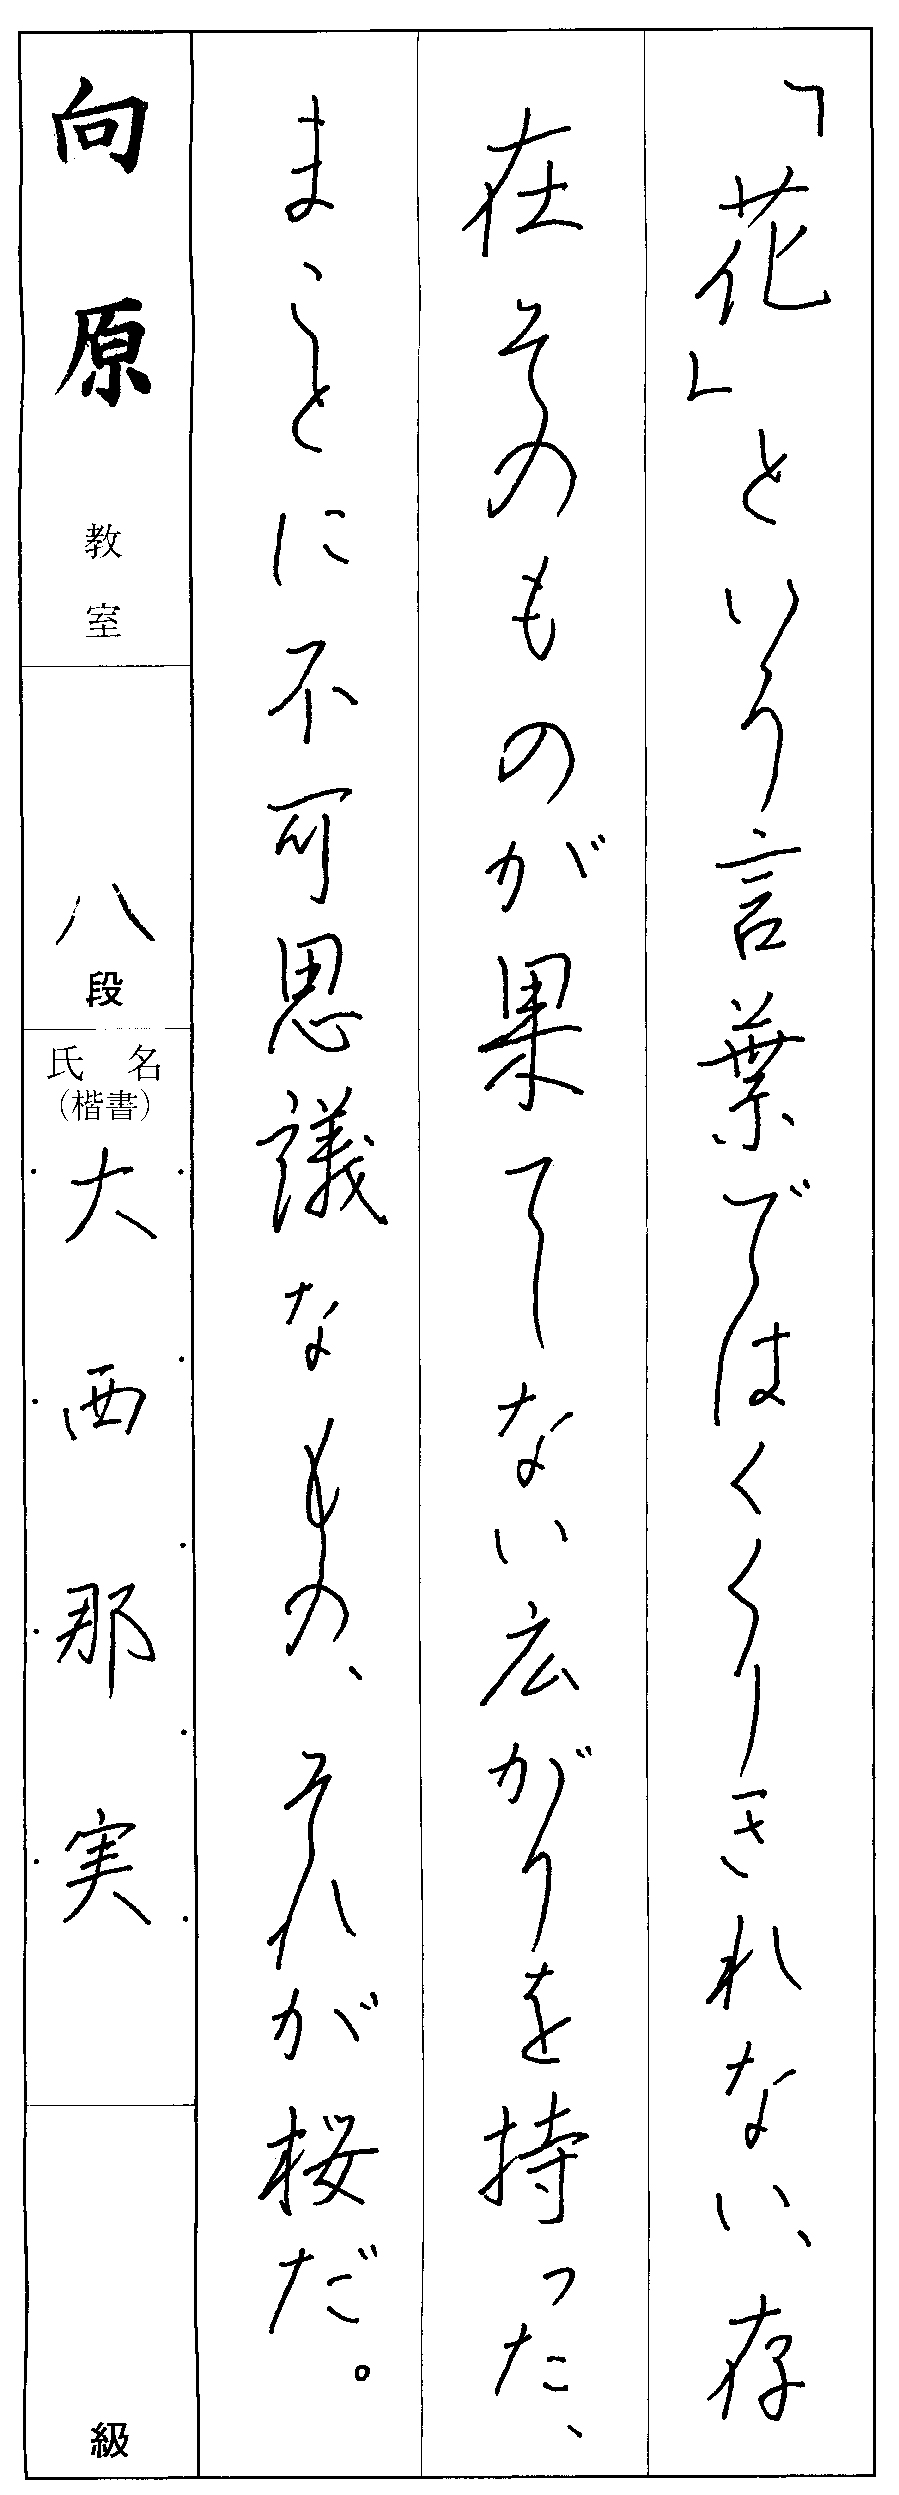 「花」という言葉ではくくりきれない、存
在そのものが果てしない広がりを持った、
まことに不可思議なもの、それが桜だ。
向原教室
八段
氏名
(楷書)
大西那実
級